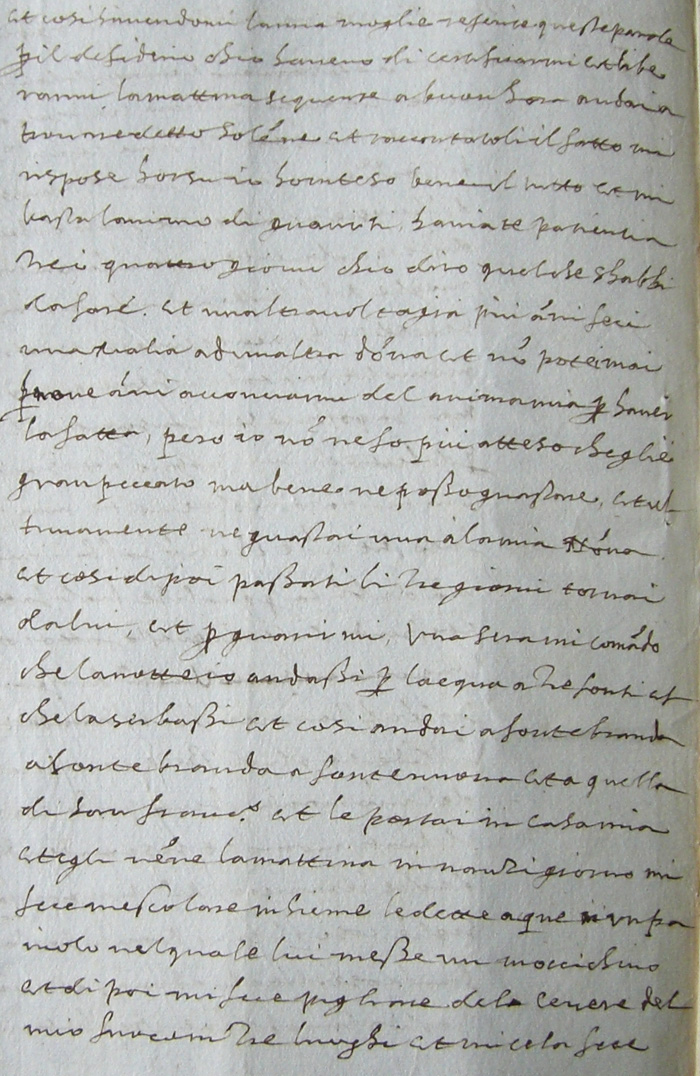 et cosi havendomi la mia moglie referite queste parole
p il desiderio chio havevo di certificarmi et libe
rarmi, la mattina sequente a buon hora andai a
trovare detto Solēne et raccontatoli il fatto mi
rispose horsu io ho inteso bene il tutto et mi
basta lanimo di guarirti, habiate patientia
trei quattro giorni chio diro quel che shabbi
da fare. et unaltra volta gia piu āni feci
una malia ad unaltra dōna et nō potei mai
p nove āni acconciarmi del anima mia p haver
la fatta, pero io nō ne fo piu atteso che glie
gran peccato ma bene ne posso guastare, et ul
timamente ne guastai una a la mia Nōna
et cosi dipoi passati li tre giorni tornai
da lui, et p guarirmi, Una sera mi comādo
che la notte io andassi p lacqua a tre fonti et
che la serbassi et cosi andai a fontebranda
a fonte branda a fontenuova et a quella
di san franc.o et le portai in casa mia
et egli vēne la mattina innanzi giorno mi
fece mescolare insieme le dette aque in un pa
iuolo nel quale lui messe un moccichino
et di poi mi fece pigliare de la cenere del
mio fuoco in tre luoghi et mi cela fece